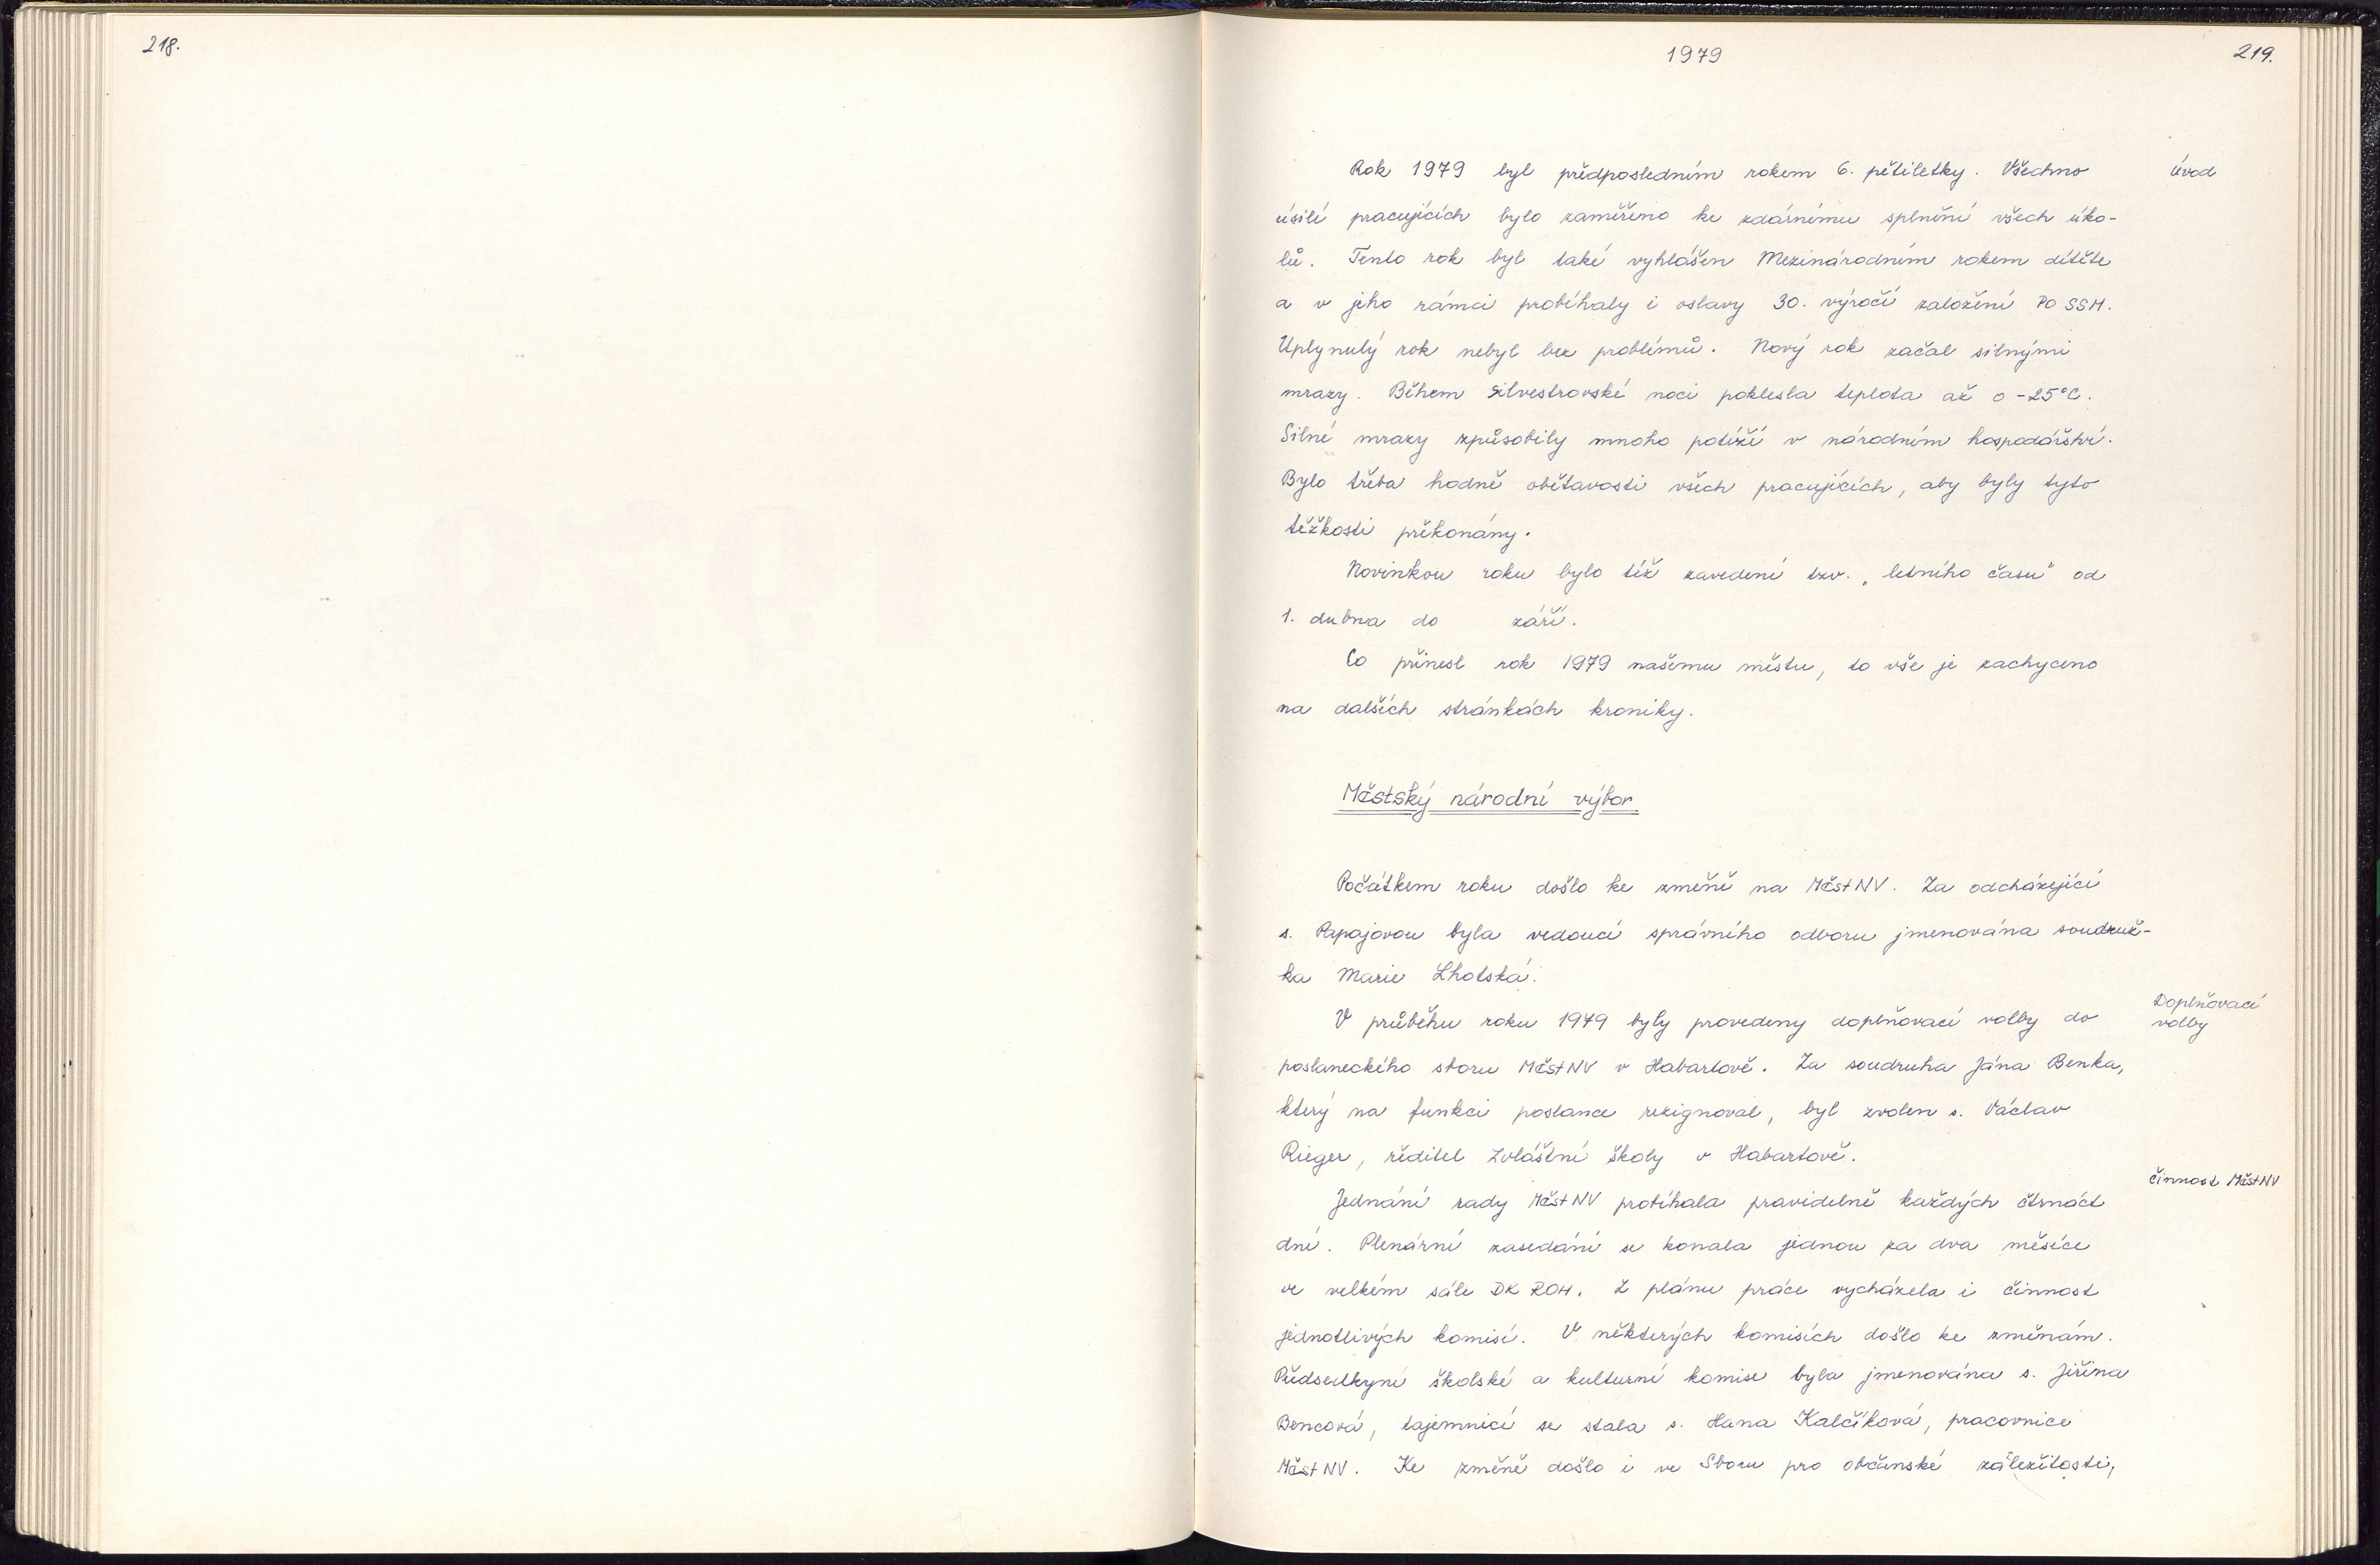 218.
1979
219.
Rok 1979 byl předposledním rokem 6. pětiletky. Všechno
úvod
úsilí pracujících bylo zaměřeno ke zdárnému splnění všech úko-
lů. Tento rok byl také vyhlášen Mezinárodním rokem dítěte
a v jeho rámci probíhaly i oslavy 30. výročí založení PO SSM.
Uplynulý rok nebyl bez problémů. Nový rok začal silnými
mrazy. Během silvestrovské noci poklesla teplota až o -25°C.
Silné mrazy způsobily mnoho potíží v národním hospodářství.
Bylo třeba hodně obětavosti všech pracujících, aby byly tyto
těžkosti překonány.
Novinkou roku bylo též zavedení tzv. „letního času" od
1. dubna do září.
Co přinesl rok 1979 našemu městu, to vše je zachyceno
na dalších stránkách kroniky.
Městský národní výbor
Počátkem roku došlo ke změně na MěstNV. Za odcházející
s. Papajovou byla vedoucí správního odboru jmenována soudruž-
ka Marie Lhotská.
V průběhu roku 1979 byly provedeny doplňovací volby do
Doplňovací
volby
poslaneckého sboru MěstNV v Habartově. Za soudruha Jána Benka,
který na funkci poslance rezignoval, byl zvolen s. Václav
Rieger, ředitel Zvláštní školy v Habartově.
činnost MěstNV
Jednání rady MěstNV probíhala pravidelně každých čtrnáct
dní. Plenární zasedání se konala jednou za dva měsíce
ve velkém sále DK ROH. Z plánu práce vycházela i činnost
jednotlivých komisí. V některých komisích došlo ke změnám.
Předsedkyní školské a kulturní komise byla jmenována s. Jiřina
Bencová, tajemnicí se stala s. Hana Kalčíková, pracovnice
MěstNV. Ke změně došlo i ve Sboru pro občanské záležitosti,